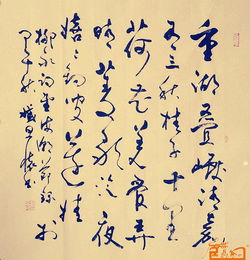 重湖疊巘清嘉
有三秋桂子十里
荷花羌管弄
晴菱歌泛夜
嬉嬉钓叟莲娃
柳永词望海潮节录